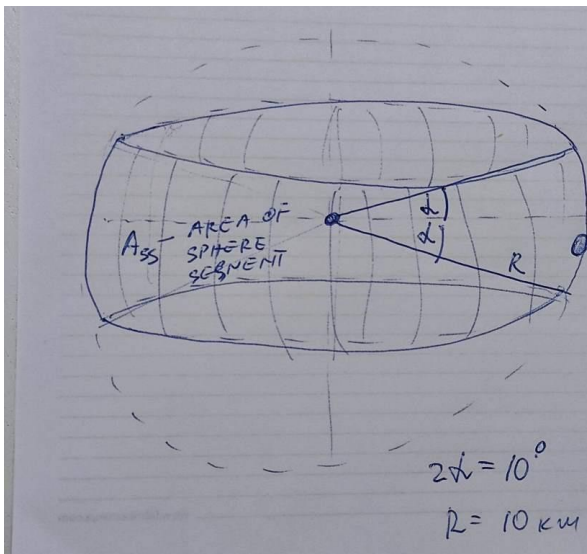 α
α
A_SS - AREA OF
SPHERE
SEGMENT
R
2α = 10°
R = 10 км